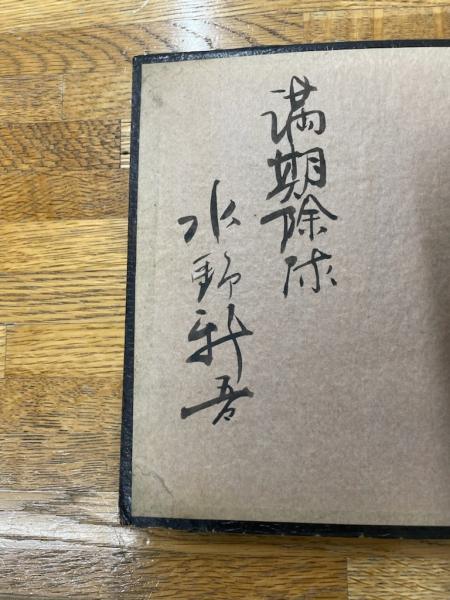 満期除隊
水野新吾